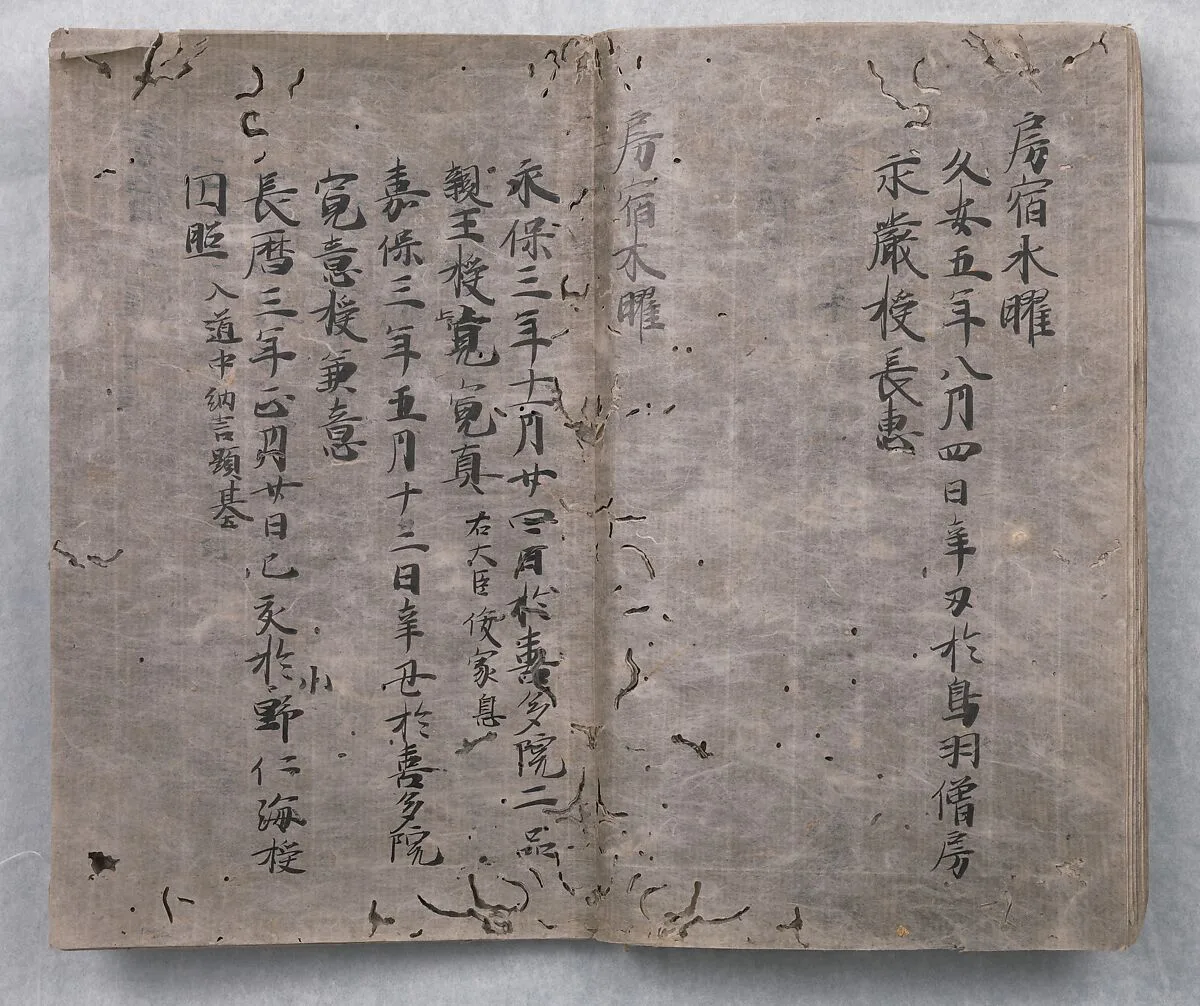 房宿水曜
久安五年八月四日辛丑於鳥羽僧房
永嚴授長恵
房宿木曜
永保三年十一月廿四日於喜多院二品
親王授寛寛真 右大臣俊家息
嘉保三年五月十二日辛丑於喜多院
寛意授兼意
長暦三年正月廿日己亥於小野仁海授
円照 入道中納言顕基